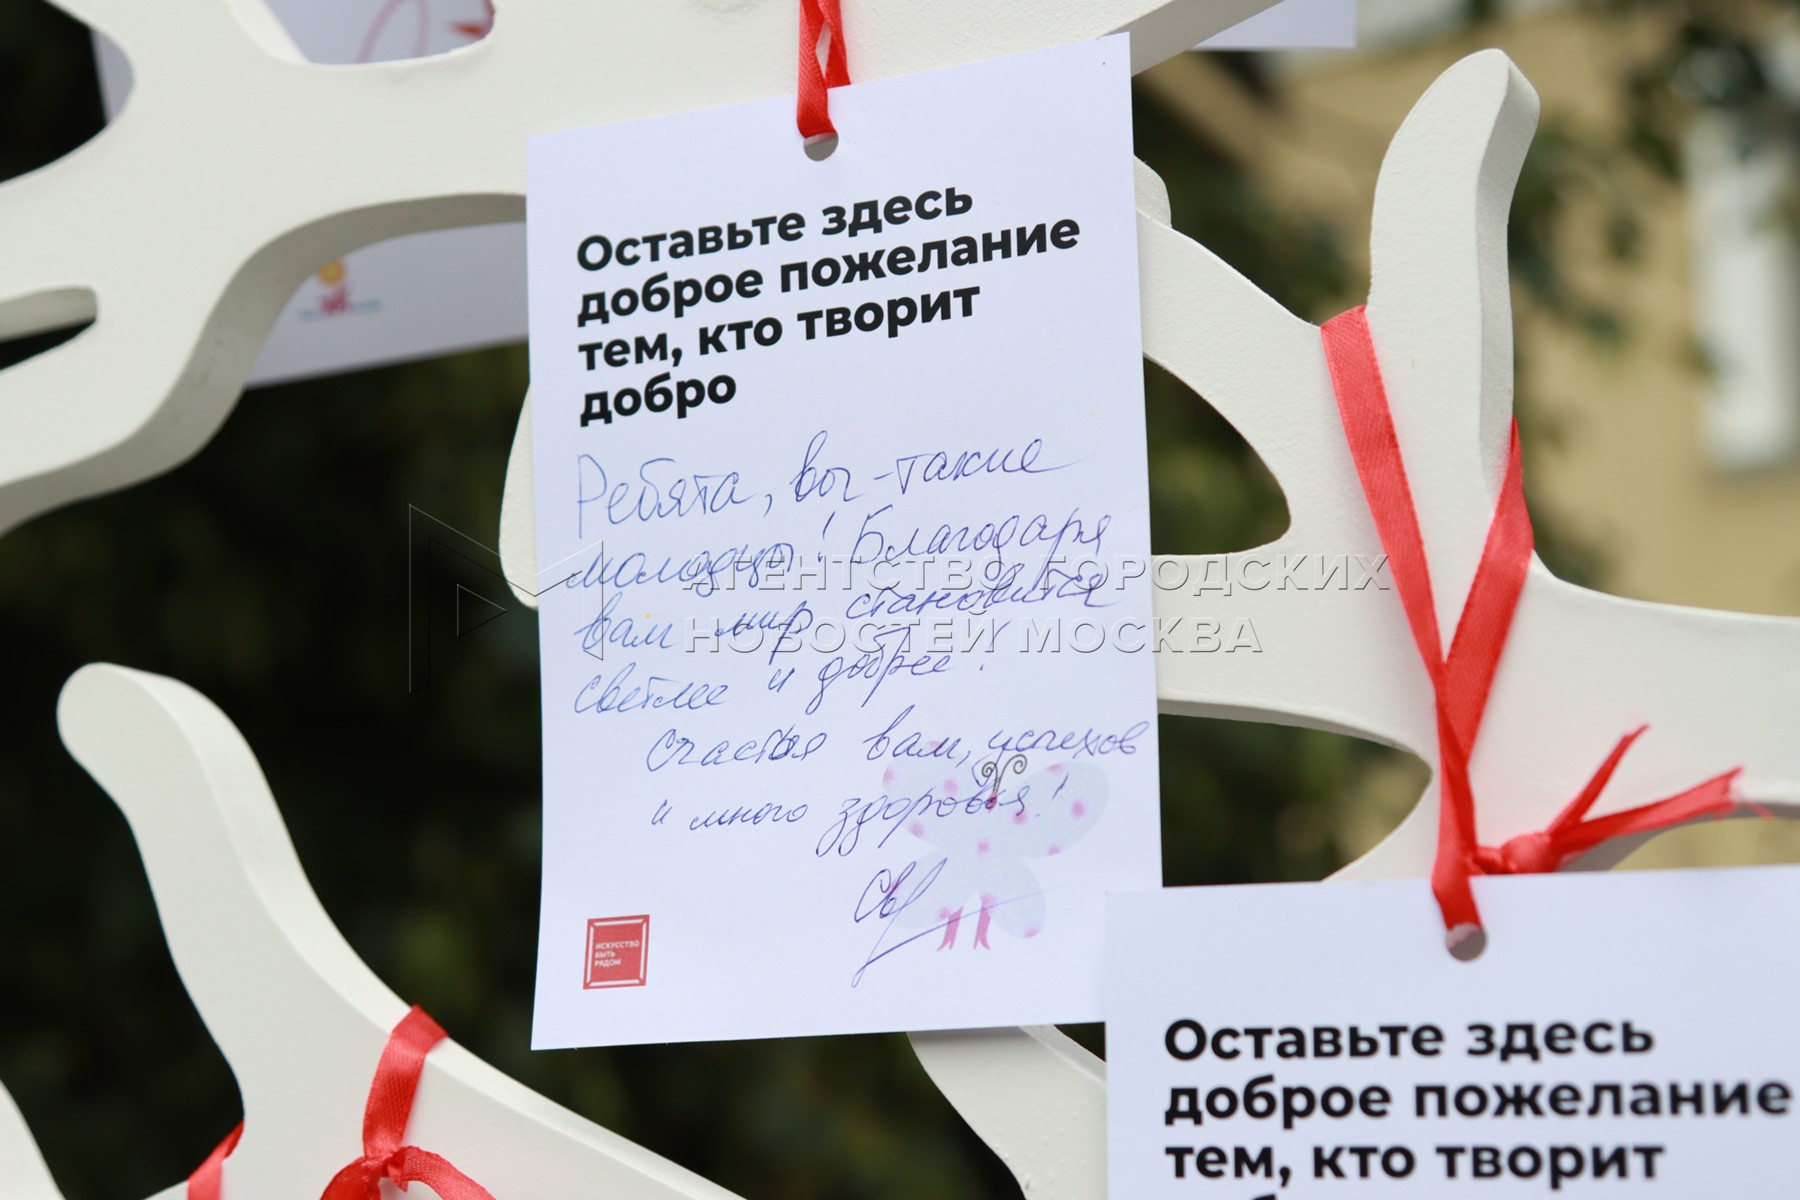 Оставьте здесь
доброе пожелание
тем, кто творит
добро
Ребята, вы-такие
молодцы! Благодаря
вам мир становится
светлее и добрее!
Счастья вам, успехов
и много здоровья!
ИСКУССТВО
БЫТЬ
РЯДОМ
АГЕНТСТВО ГОРОДСКИХ
НОВОСТЕЙ МОСКВА
Оставьте здесь
доброе пожелание
тем, кто творит